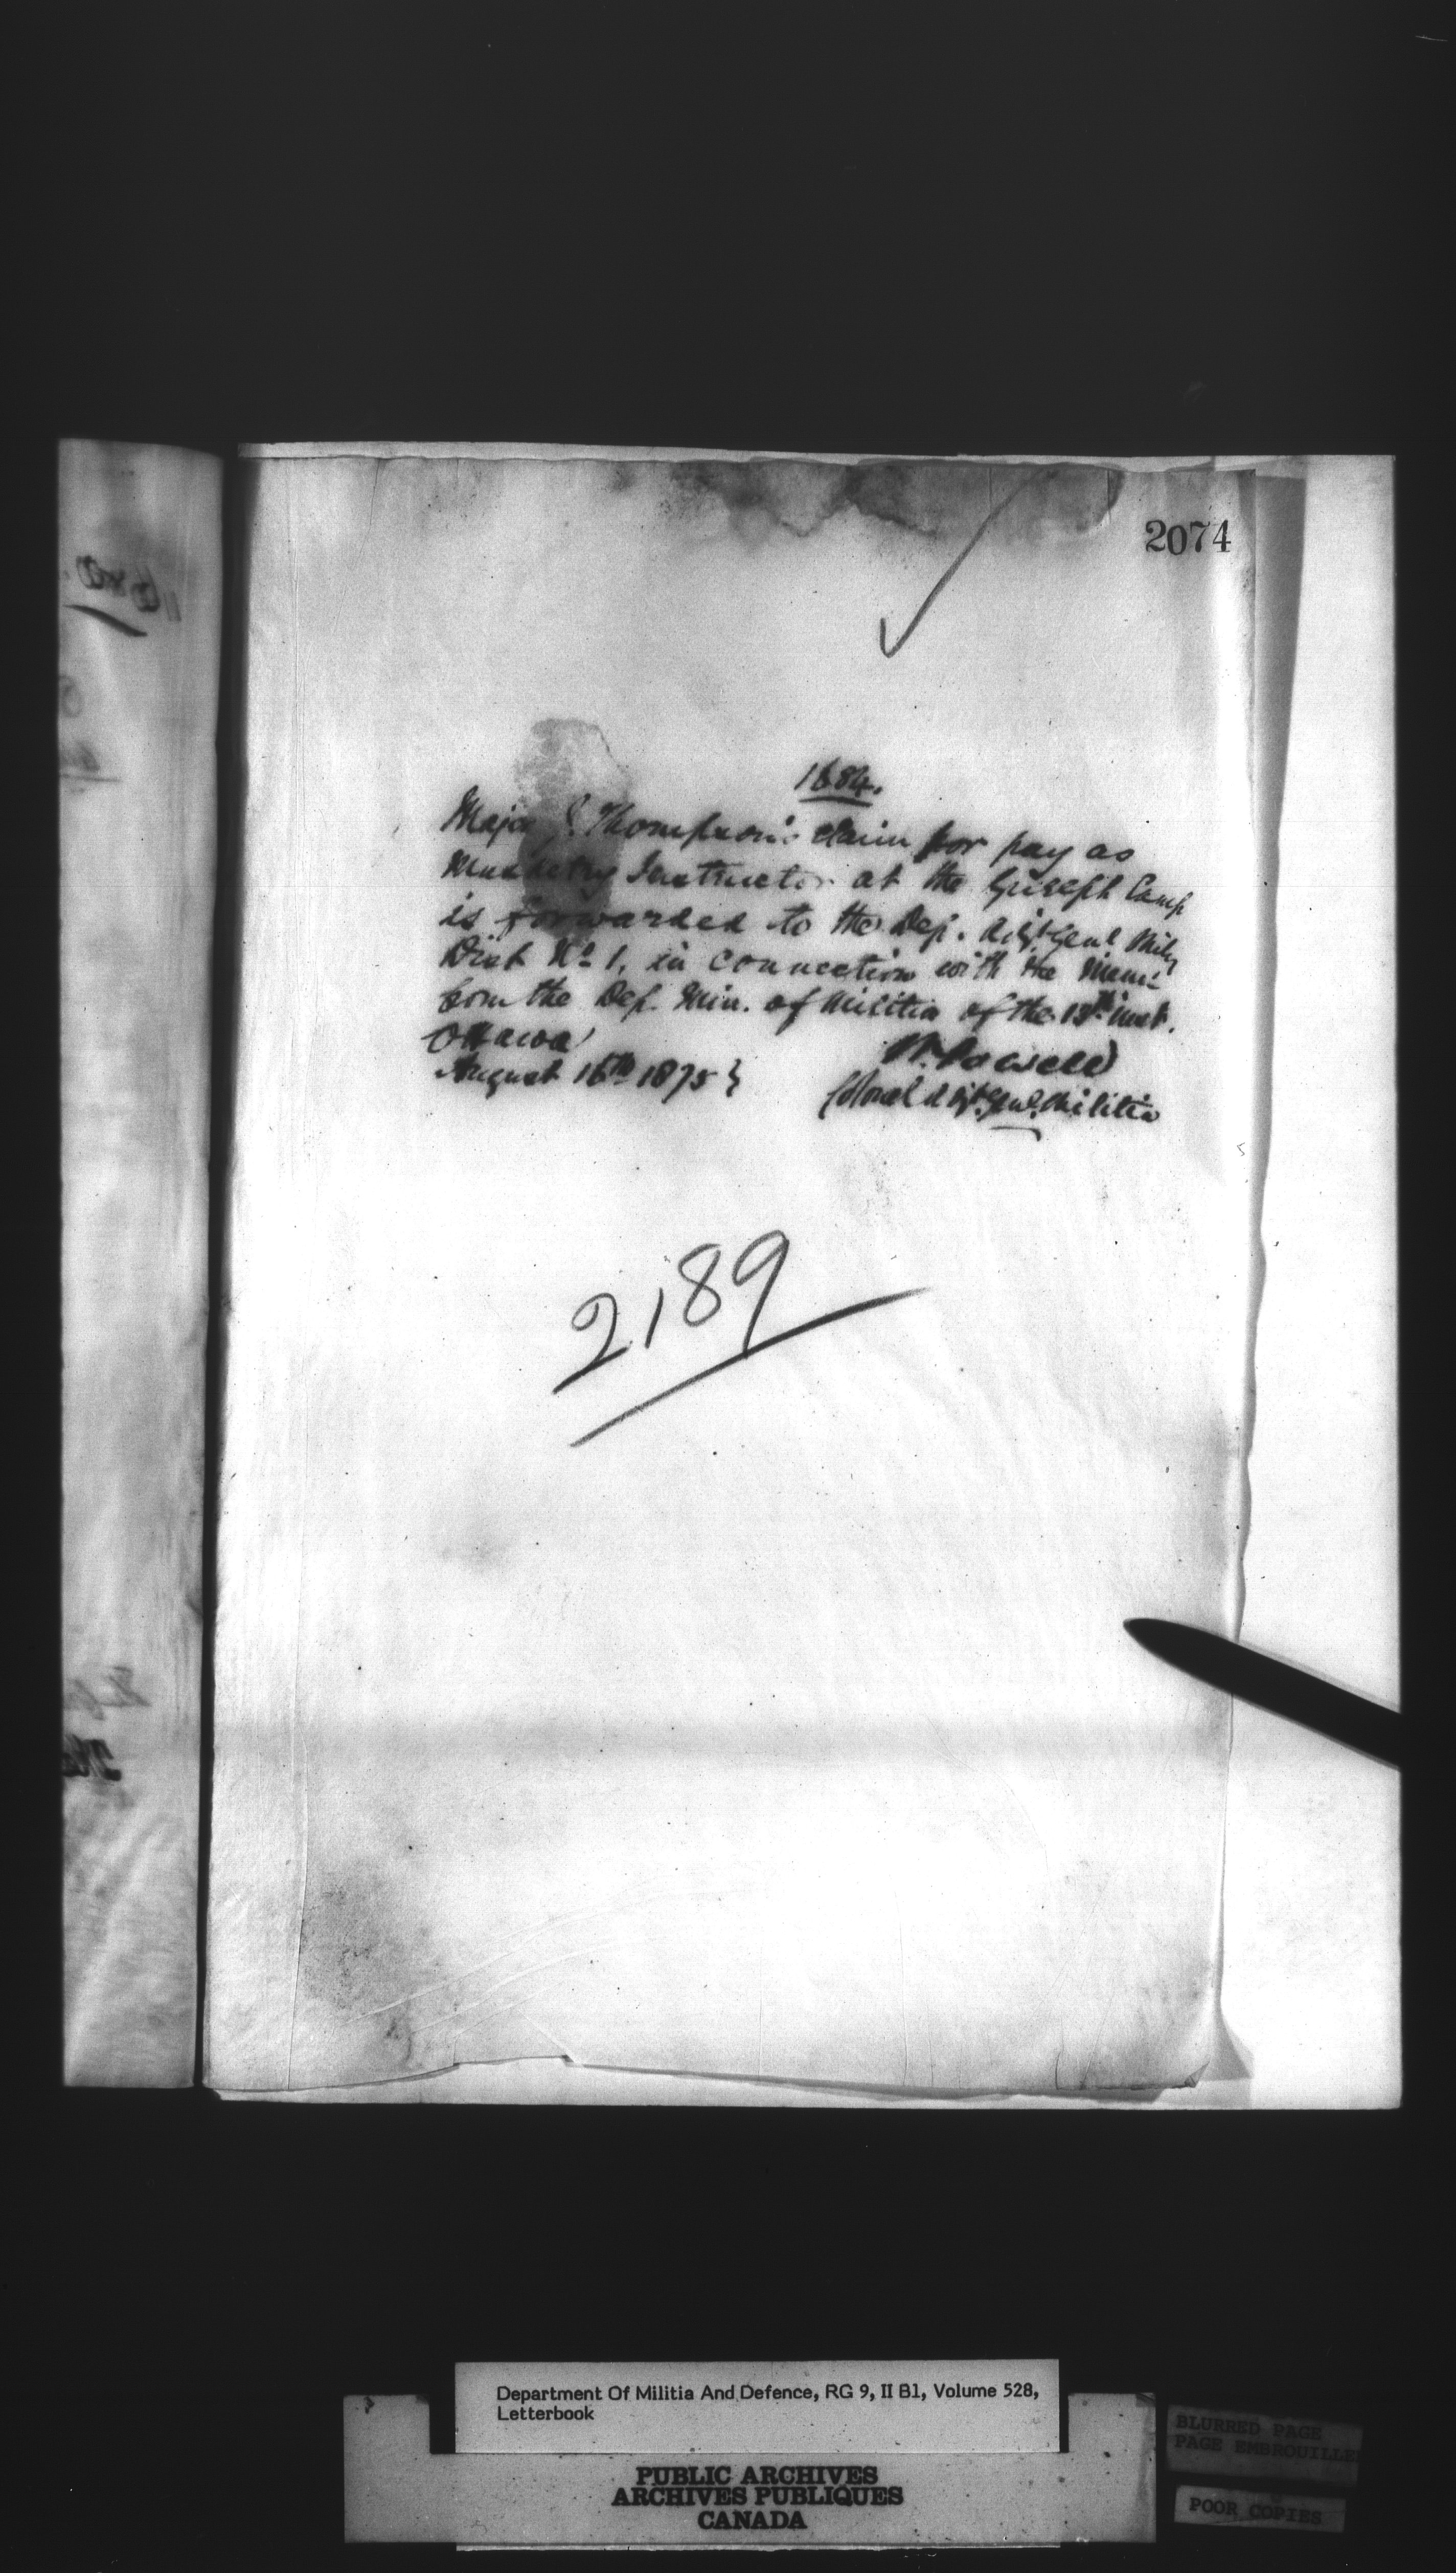 2074
1884.
Major Thompson's claim for pay as
Musketry Instructor at the Guelph Camp
is forwarded to the Dep. Adjt Genl Mily
Dist No 1, in connection with the Memo
from the Dep. Min. of Militia of the 13th inst.
Ottawa
August 16th 1875 }
W. Powell
Colonel A Djt. Genl. Militia
2189
Department Of Militia And Defence, RG 9, II B1, Volume 528,
Letterbook
PUBLIC ARCHIVES
ARCHIVES PUBLIQUES
CANADA
BLURRED PAGE
PAGE EMBROUILLE
POOR COPIES